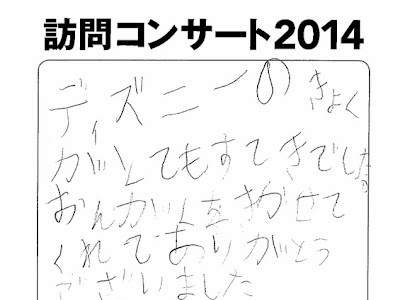 訪問コンサート2014
ディズニーのきょく
がとてもすてきでした。
おんがくをきかせて
くれてありがとう
ございました